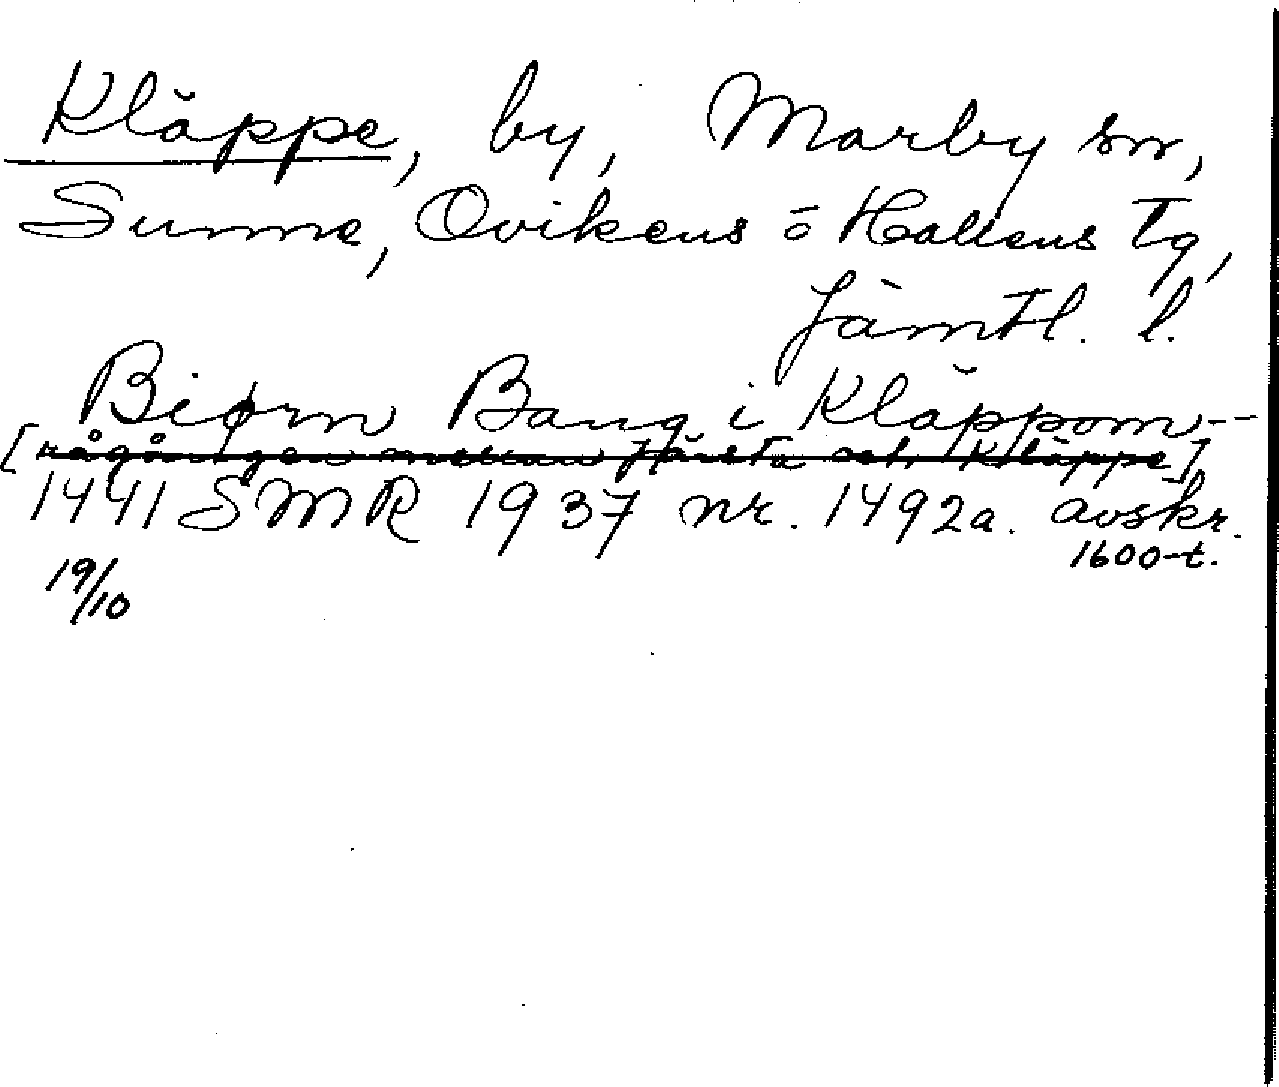 Kläppe, by, Marby sn,
Sunne, Ovikens o Hallens tg,
Jämtl. l.
Biørn Bang i Kläppom -
[rågången mellan Hårsta och Kläppe]
1441 SMR 1937 nr. 1492a. avskr.
1600-t.
19/10